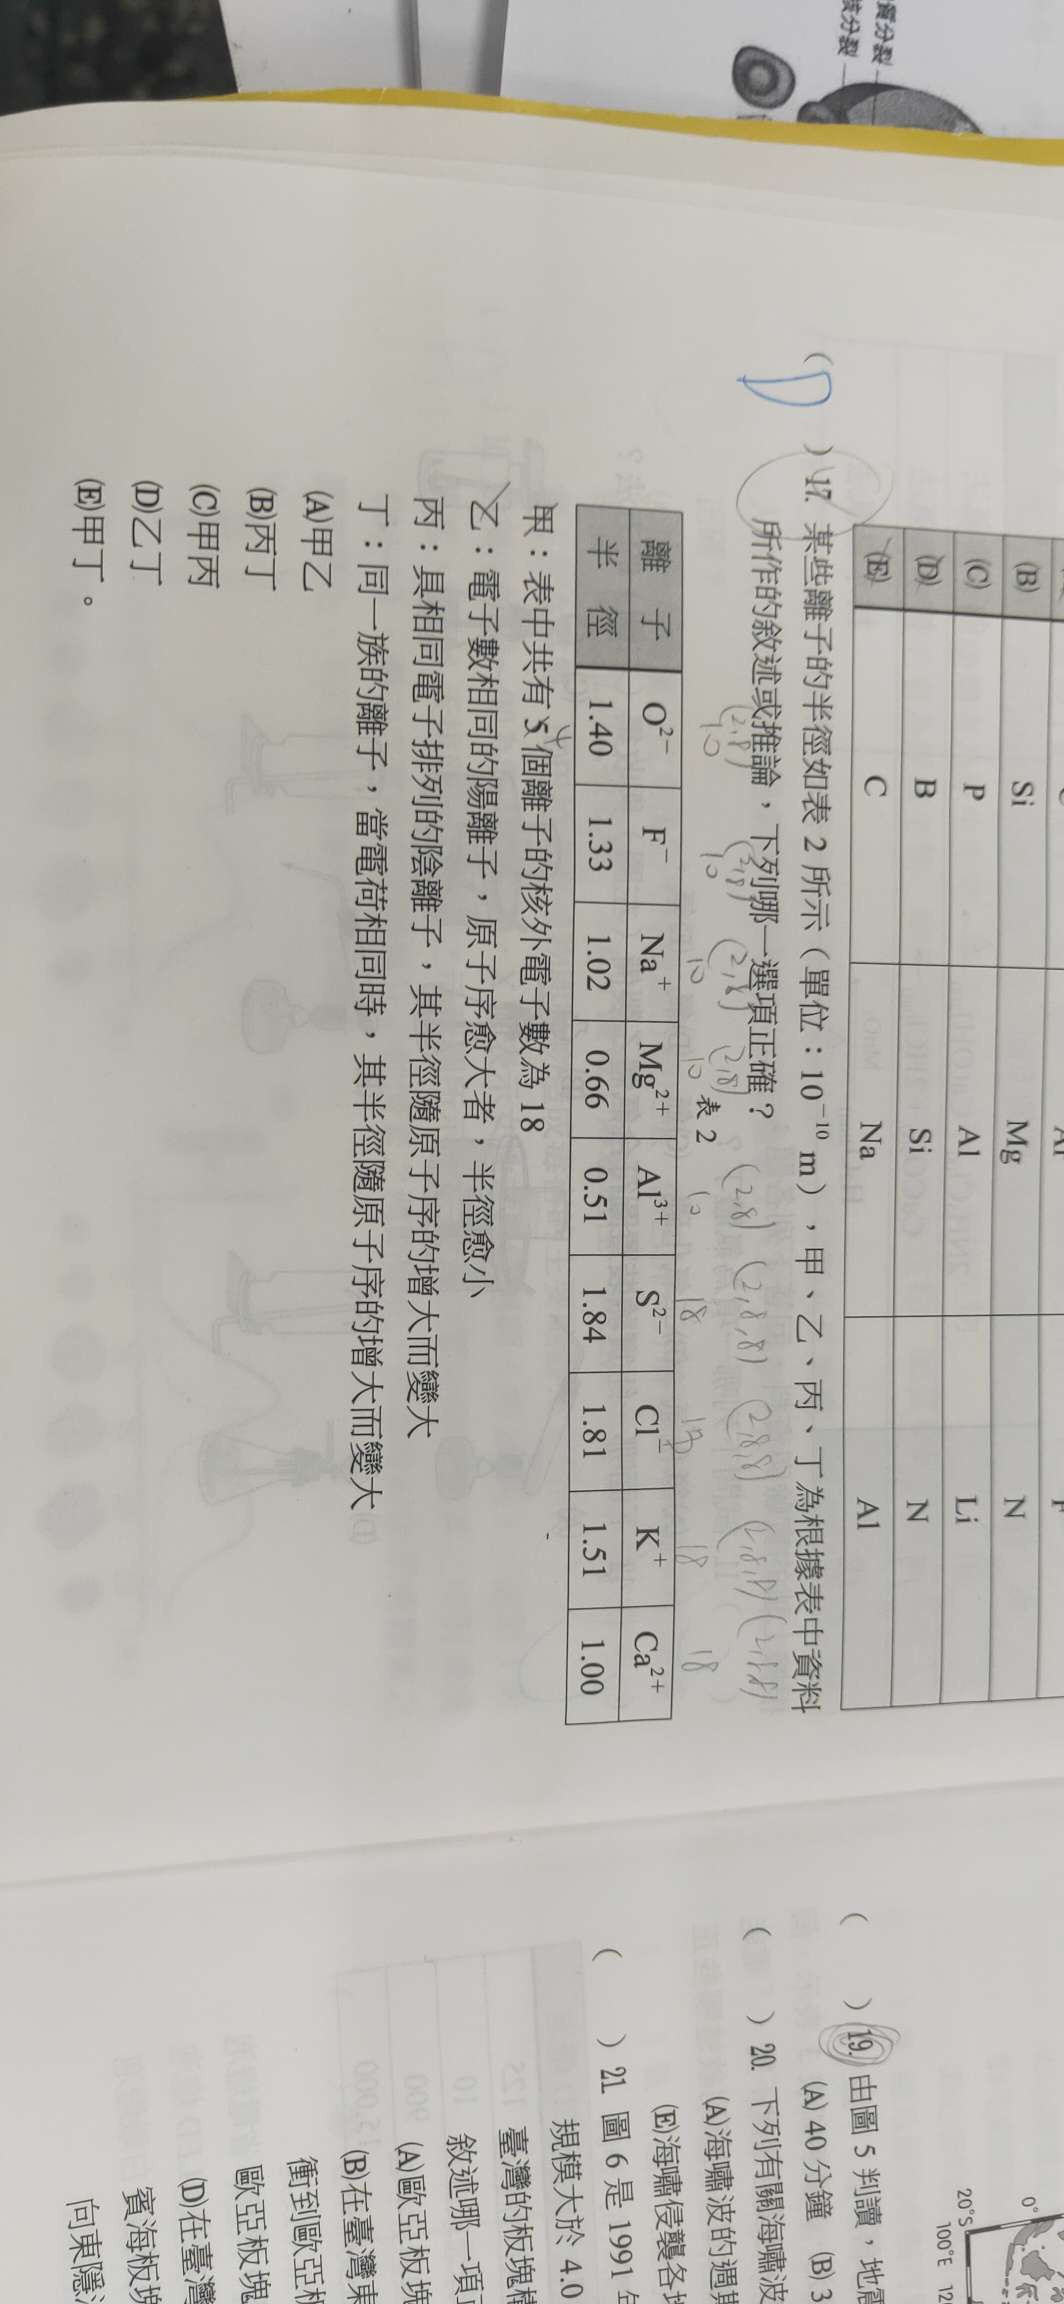 質分裂
核分裂
(B) Si Mg N
(C) P Al Li
(D) B Si N
(E) C Na Al
( D ) 17. 某些離子的半徑如表 2 所示（單位：10⁻¹⁰ m），甲、乙、丙、丁為根據表中資料
所作的敘述或推論，下列哪一選項正確？
(2,8) (2,8) (2,8) (2,8) (2,8) (2,8,8) (2,8,8) (2,8,8) (2,8,8)
表 2
10 10 10 10 10 18 18 18 18
離子 O²⁻ F⁻ Na⁺ Mg²⁺ Al³⁺ S²⁻ Cl⁻ K⁺ Ca²⁺
半徑 1.40 1.33 1.02 0.66 0.51 1.84 1.81 1.51 1.00
甲：表中共有 5 個離子的核外電子數為 18
4
乙：電子數相同的陽離子，原子序愈大者，半徑愈小
丙：具相同電子排列的陰離子，其半徑隨原子序的增大而變大
丁：同一族的離子，當電荷相同時，其半徑隨原子序的增大而變大
(A)甲乙
(B)丙丁
(C)甲丙
(D)乙丁
(E)甲丁。
0°
20°S
100°E
( ) 19. 由圖 5 判讀，地震
(A) 40 分鐘 (B) 3
( ) 20. 下列有關海嘯波
(A)海嘯波的週期
(E)海嘯侵襲各地
( ) 21. 圖 6 是 1991
規模大於 4.0
臺灣的板塊構
敘述哪一項
(A)歐亞板塊
(B)在臺灣東
衝到歐亞板
歐亞板塊
(D)在臺灣
賓海板塊
向東隱